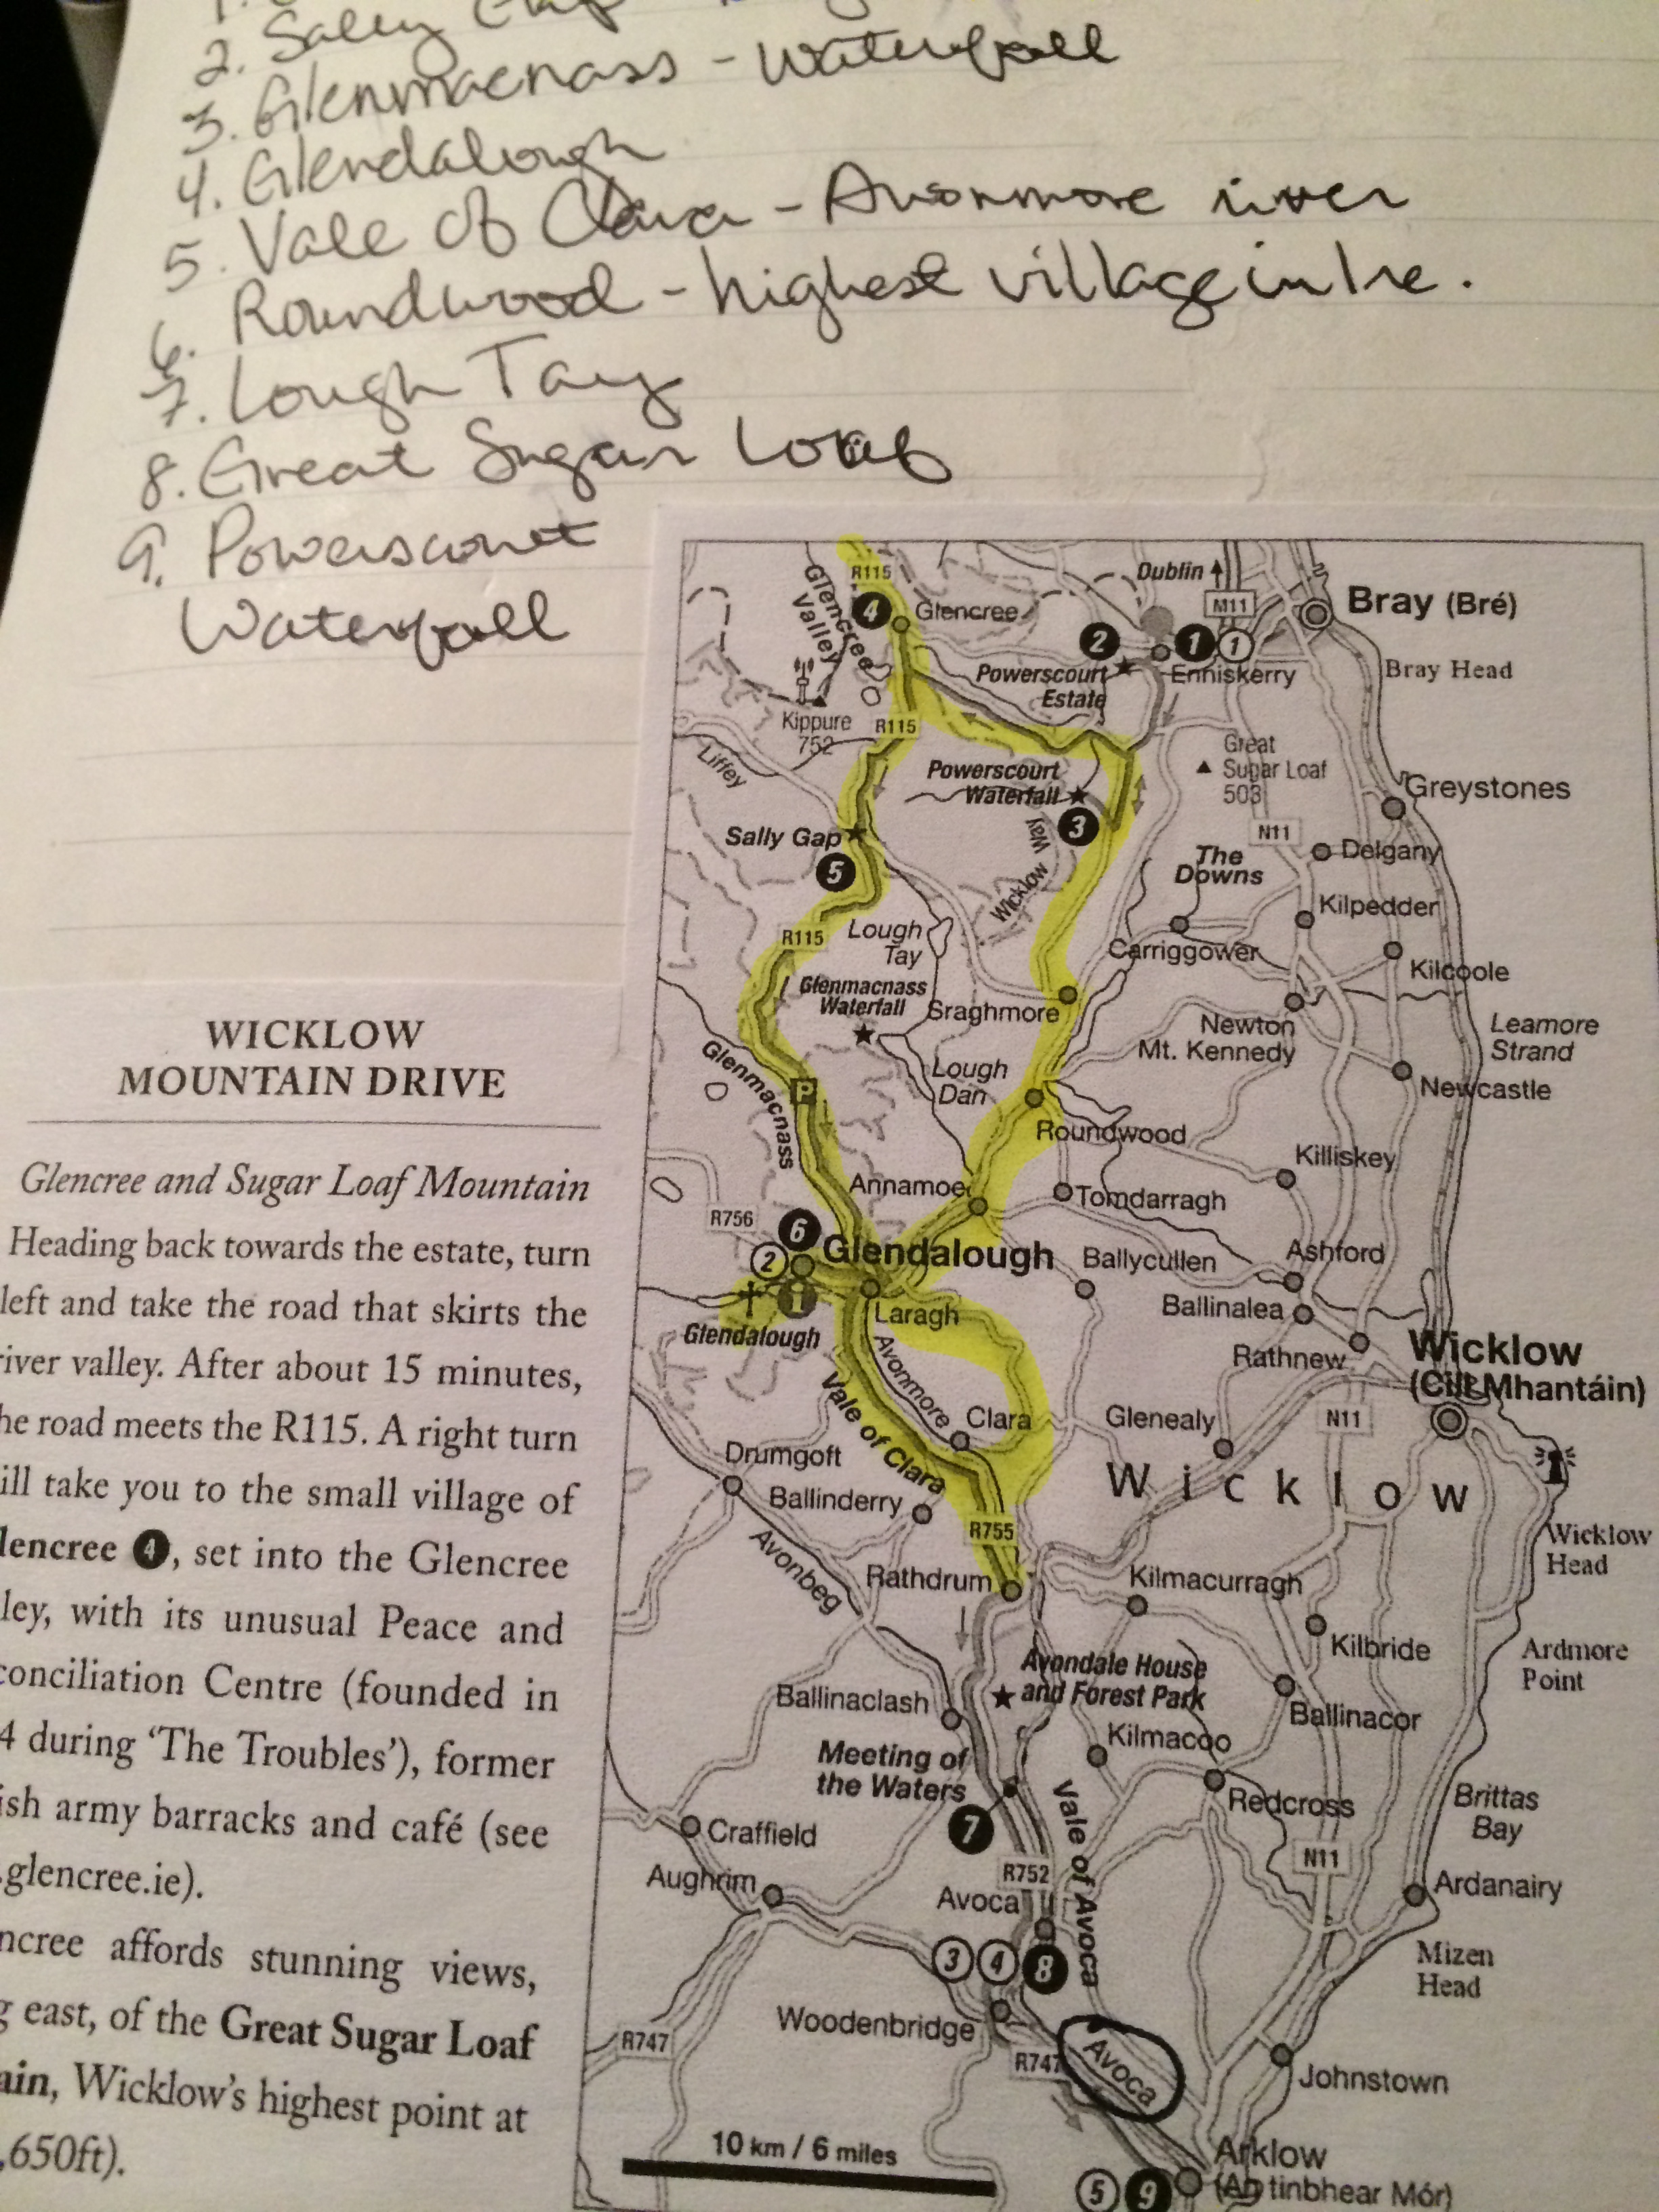 2. Sally Gap
3. Glenmacnass - Waterfall
4. Glendalough
5. Vale of Clara - Avonmore river
6. Roundwood - highest village in Ire.
7. Lough Tay
8. Great Sugar Loaf
9. Powerscourt
Waterfall
WICKLOW
MOUNTAIN DRIVE
Glencree and Sugar Loaf Mountain
Heading back towards the estate, turn
left and take the road that skirts the
river valley. After about 15 minutes,
he road meets the R115. A right turn
ill take you to the small village of
lencree 4, set into the Glencree
ley, with its unusual Peace and
conciliation Centre (founded in
4 during ‘The Troubles’), former
ish army barracks and café (see
.glencree.ie).
ncree affords stunning views,
g east, of the Great Sugar Loaf
ain, Wicklow’s highest point at
,650ft).
R115
Dublin
M11
Bray (Bré)
Glencree
Valley
4
Glencree
2
1
1
Enniskerry
Bray Head
Powerscourt
Estate
Kippure
752
R115
Liffey
Great
Sugar Loaf
503
Powerscourt
Waterfall
3
Greystones
Sally Gap
5
Wicklow
Way
N11
Delgany
The
Downs
Kilpedder
R115
Lough
Tay
Carriggower
Kilcoole
Glenmacnass
Waterfall
Sraghmore
Newton
Mt. Kennedy
Leamore
Strand
Glenmacnass
P
Lough
Dan
Newcastle
Roundwood
Killiskey
Annamoe
Tomdarragh
R756
6
2
Glendalough
i
Ballycullen
Ashford
Glendalough
Laragh
Ballinalea
Rathnew
Wicklow
(Cill Mhantáin)
Avonmore
Vale of Clara
Clara
Glenealy
N11
Drumgoft
Ballinderry
Wicklow
R755
Avonbeg
Rathdrum
Kilmacurragh
Wicklow
Head
Kilbride
Avondale House
and Forest Park
Ardmore
Point
Ballinaclash
Ballinacor
Kilmacoo
Meeting of
the Waters
7
Redcross
Brittas
Bay
Craffield
Vale of Avoca
R752
N11
Aughrim
Avoca
Ardanairy
3
4
8
Mizen
Head
Woodenbridge
R747
R747
Avoca
Johnstown
10 km / 6 miles
Arklow
(An tInbhear Mór)
5
9